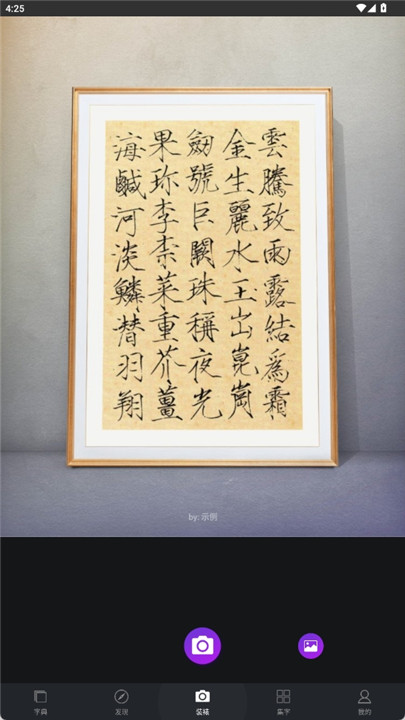 4:25
雲騰致雨露結為霜
金生麗水玉出崑崗
劔號巨闕珠稱夜光
果珍李柰菜重芥薑
海鹹河淡鱗潛羽翔
by: 示例
字典
发现
装裱
集字
我的